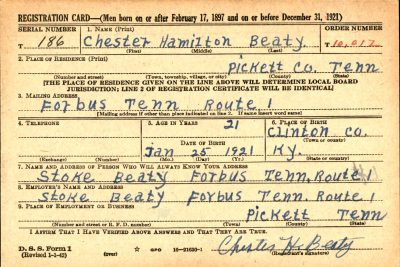 REGISTRATION CARD—(Men born on or after February 17, 1897 and on or before December 31, 1921)
SERIAL NUMBER 1. NAME (Print) ORDER NUMBER
T 186 Chester Hamilton Beaty T
(First) (Middle) (Last)
2. PLACE OF RESIDENCE (Print)
Pickett Co. Tenn
(Number and street) (Town, township, village, or city) (County) (State)
[THE PLACE OF RESIDENCE GIVEN ON THE LINE ABOVE WILL DETERMINE LOCAL BOARD
JURISDICTION; LINE 2 OF REGISTRATION CERTIFICATE WILL BE IDENTICAL]
3. MAILING ADDRESS
Forbus Tenn Route 1
[Mailing address if other than place indicated on line 2. If same insert word same]
4. TELEPHONE 5. AGE IN YEARS 6. PLACE OF BIRTH
21 Clinton Co.
DATE OF BIRTH (Town or county)
Jan 25 1921 Ky.
(Exchange) (Number) (Mo.) (Day) (Yr.) (State or country)
7. NAME AND ADDRESS OF PERSON WHO WILL ALWAYS KNOW YOUR ADDRESS
Stoke Beaty Forbus Tenn, Route 1
8. EMPLOYER'S NAME AND ADDRESS
Stoke Beaty Forbus Tenn. Route 1
9. PLACE OF EMPLOYMENT OR BUSINESS
Pickett Tenn
(Number and street or R. F. D. number) (Town) (County) (State)
I AFFIRM THAT I HAVE VERIFIED ABOVE ANSWERS AND THAT THEY ARE TRUE.
D. S. S. Form 1 GPO 16—21630-1 Chester H. Beaty
(Revised 1-1-42) (over) (Registrant's signature)